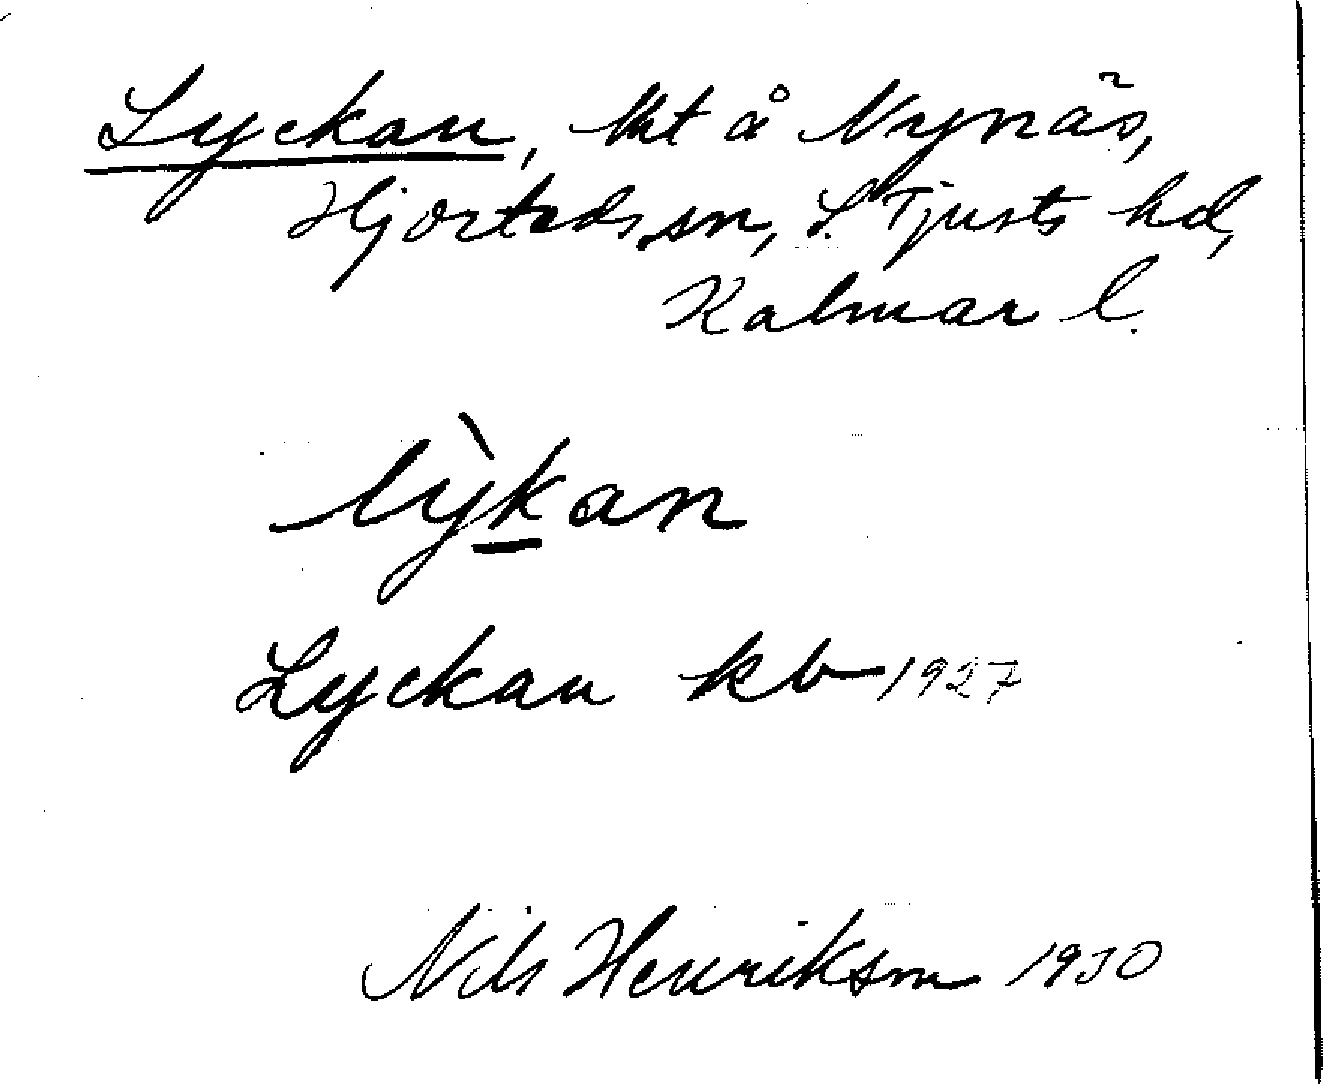 Lyckan, lht å Nynäs,
Hjorteds sn, S. Tjusts hd,
Kalmar l.
lỳkan
Lyckan kb 1927
Nils Henriksson 1930